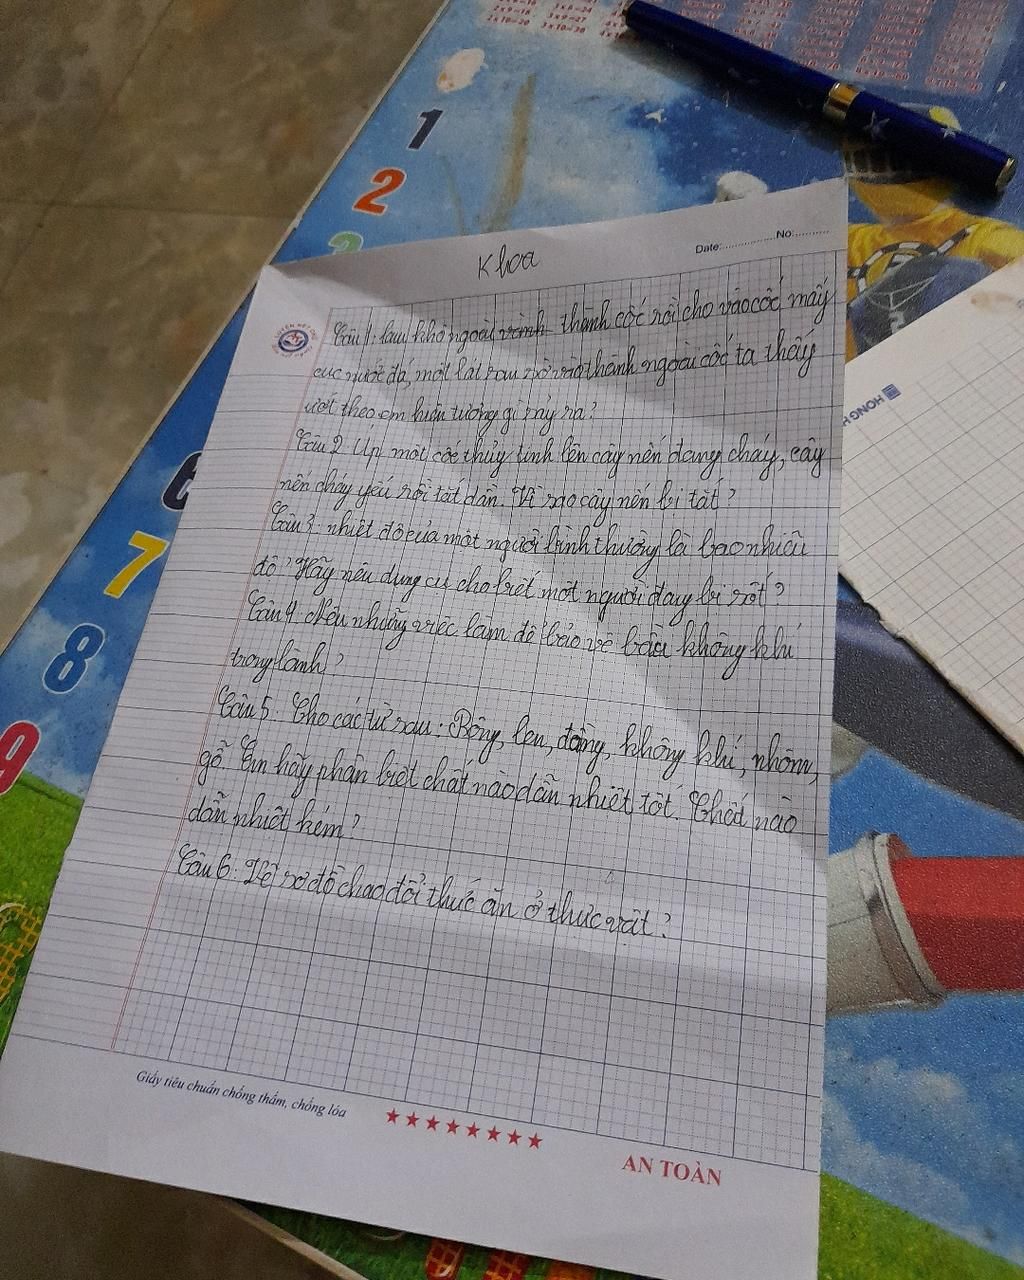 1
2
3
6
7
8
9
Date:.................No:..........
Khoa
Câu 1: lau khô ngoài thành cốc rồi cho vào cốc mấy
cục nước đá, một lát sau sờ vào thành ngoài cốc ta thấy
ướt theo em hiện tượng gì xảy ra?
Câu 2 Úp một cốc thủy tinh lên cây nến đang cháy, cây
nến cháy yếu rồi tắt dần. Vì sao cây nến bị tắt?
Câu 3: nhiệt độ của một người bình thường là bao nhiêu
độ? Hãy nêu dụng cụ cho biết một người đang bị sốt?
Câu 4. Nêu những việc làm để bảo vệ bầu không khí
trong lành?
Câu 5: Cho các từ sau: Bông, len, đồng, không khí, nhôm,
gỗ. Em hãy phân biệt chất nào dẫn nhiệt tốt. Chất nào
dẫn nhiệt kém?
Câu 6: Vẽ sơ đồ chao đổi thức ăn ở thực vật?
Giấy tiêu chuẩn chống thấm, chống lóa
AN TOÀN
HONG H